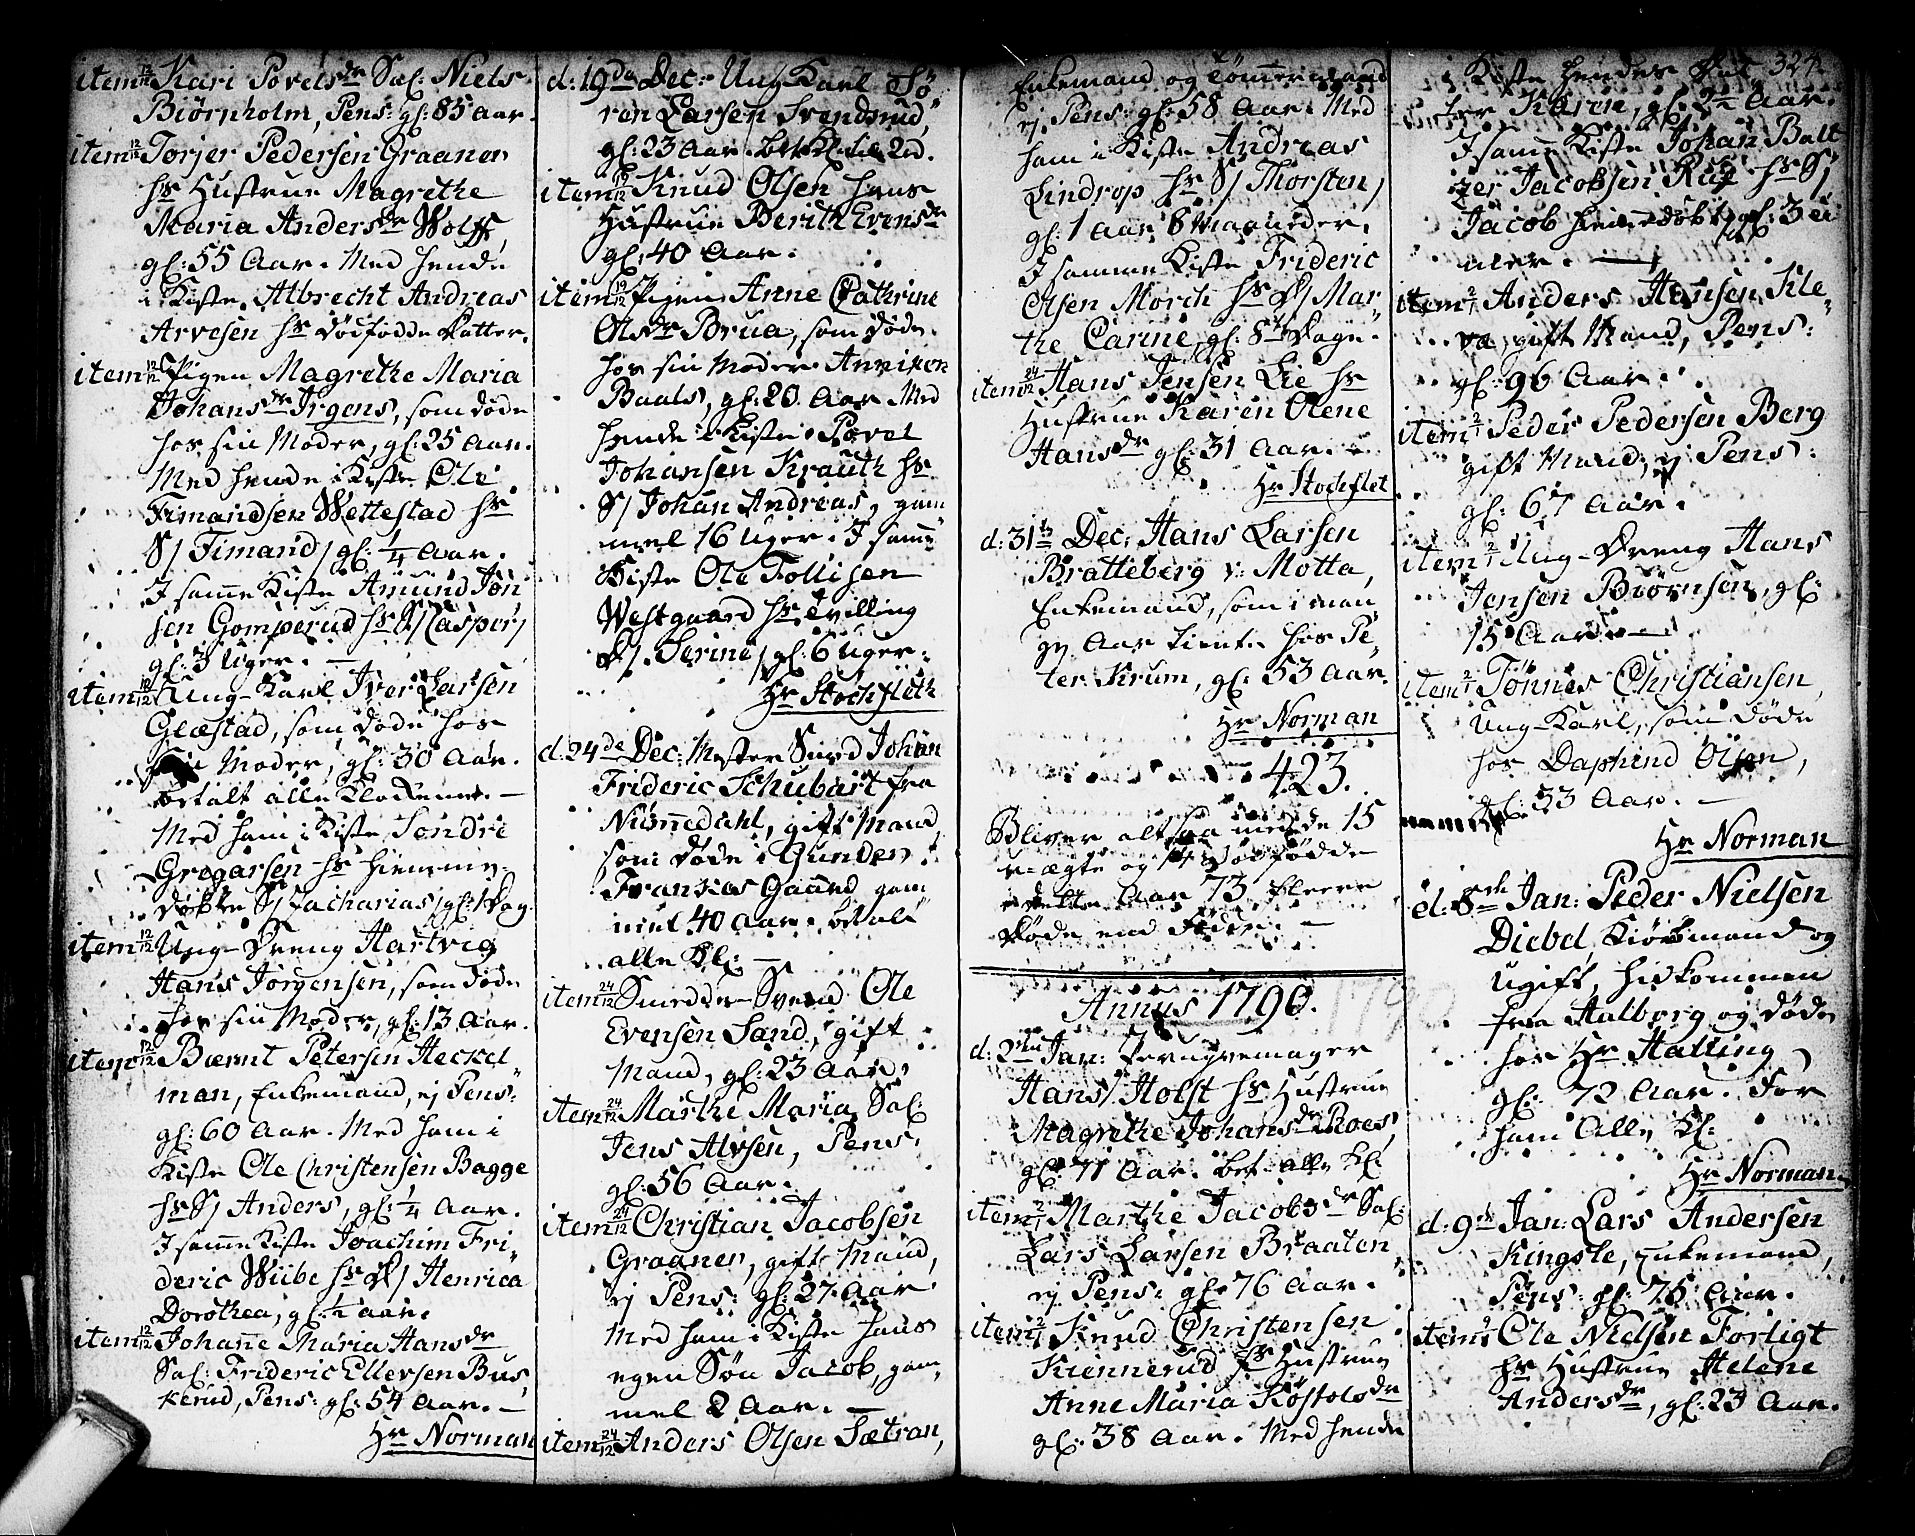 item 12/12 Kari Povelsdr Sal: Niels
Biørnholm, Pens: gl: 85 Aar.
item 12/12 Torjer Pedersen Graaner
hs Hustrue Magrethe
Maria Andersdr Wolff,
gl: 55 Aar. Med hende
i Kiste Albrecht Andreas
Arvesen hs dødfødde Datter.
item 12/12 Pigen Magrethe Maria
Johansdr Irgens, som døde
hos sin Moder, gl: 25 Aar.
Med hende i Kiste Ole
Fimandsen Wettestad hs
S/ Fimand/ gl: 1/4 Aar.
I samme Kiste Amund Jon
sen Gomperud hs S/ Casper/
gl: 3 Uger. —
item 12/12 Ung-Karl Iver Larsen
Glæstad, som døde hos
sin Moder, gl: 30 Aar.
betalt alle Klokkerne. —
Med ham i Kiste Søndre
Gregarsen hs hiemme-
døbte S/ Zacharias/ gl: 1 Dag
item 12/12 Ung-Dreng Hartvig
Hans Jørgensen, som døde
hos sin Moder, gl: 13 Aar.
item 12/12 Bærnt Petersen Heckel
man, Enkemand, ej Pens:
gl: 60 Aar. Med ham i
Kiste Ole Christensen Bagge
hs S/ Anders, gl: 1/4 Aar.
I samme Kiste Joachim Fri-
deric Wiibe hs D/ Henrica
Dorothea, gl: 1/2 Aar.
item 12/12 Johanne Maria Hansdr
Sal: Frideric Ellersen Bus,
kerud, Pens: gl: 54 Aar. —
Hr Norman
d: 19de Dec: Ung Karl Sö
ren Larsen Svendsrud,
gl: 23 Aar. bet Kl: til 2rd.
item 19/12 Knud Olsen hans
Hustrue Berith Evensdr
gl: 40 Aar.
item 19/12 Pigen Anne Cathrine
Olsdr Brua, som døde
hos sin Moder
Baals, gl: 20 Aar Med
hende i Kiste Povel
Johansen Krauth hs
S/ Johan Andreas, gam
mel 16 Uger. I samme
Kiste Ole Follisen
Westgaard hs Tvilling
D/ Serine/ gl: 6 Uger.
Hr Stochfleth
d: 24de Dec: Mester Svend Johan
Frideric Schubart fra
Nummedahl, gift Mand
som døde i
gaard gam
mel 40 Aar. betalt
alle Kl: —
item 24/12 Smedde-Svend Ole
Evensen Sand, gift
Mand, gl: 23 Aar,
item 24/12 Marthe Maria Sal:
Jens Alvsen, Pens:
gl: 56 Aar.
item 24/12 Christian Jacobsen
Graaner, gift Mand,
ej Pens: gl: 27 Aar
Med ham i Kiste hans
egen Søn Jacob, gam,
mel 2 Aar. —
item 24/12 Anders Olsen Sætran,
Enkemand og Tømmermand
ej Pens: gl: 58 Aar. Med
ham i Kiste Andreas
Lindrop hs S/ Thorsten/
gl: 1 Aar 8 Maaneder.
I samme Kiste Frideric
Olsen Morch hs D/ Mar-
the Carine, gl: 8te Dage.
item 24/12 Hans Jensen Lie hs
Hustrue Karen Olene
Hansdr gl: 31 Aar. —
Hr Stochflet
d: 31te Dec: Hans Larsen
Bratteberg v: Motta,
Enkemand, som i man,
gn Aar tiente hos Pe-
ter Krum, gl: 53 Aar.
Hr Norman
423.
Bliver altsaa med de 15
u-ægte og 14 dødfødde
i dette Aar 73 fleere
Døde end Fødte. —
Annus 1790.
d: 2den Jan: Jerngremager
Hans Holst hs Hustrue
Magrethe Johansdr Roes,
gl: 71 Aar. bet alle Kl:
item 2/1 Marthe Jacobsdr Sal:
Lars Larsen Braaten
ej Pens: gl: 76 Aar.
item 2/1 Knud Christensen
Kiennerud hs Hustrue
Anne Maria Kostolsdr
gl: 38 Aar. Med hende
324.
i Kiste hendes
ter Karen, gl: 2 1/2 Aar.
I samme Kiste Johan Balt
zer Jacobsen Rug hs S/
Jacob hiemmedøbt/ gl: 3
item 2/1 Anders Hansen Kle-
va, gift Mand, Pens:
gl: 96 Aar.
item 2/1 Peder Pedersen Berg
gift Mand, ej Pens:
gl: 67 Aar.
item 2/1 Ung-Dreng Hans
Jensen Biørnsen, gl:
15 Aar. —
item 2/1 Tönnes Christiansen,
Ung-Karl, som døde
hos Daphind Olsen,
gl: 33 Aar. —
Hr Norman
d: 8de Jan: Peder Nielsen
Diebel, Kiøbmand og
ugift, hidkommen
fra Aalborg og døde
hos Hr Halling,
gl: 72 Aar. For
ham Alle Kl:
Hr Norman.
d: 9de Jan: Lars Andersen
Kingsle, Enkemand,
Pens: gl: 75 Aar.
item 9 Ole Nielsen Forligt
hs Hustrue Helene
Andersdr, gl: 23 Aar.